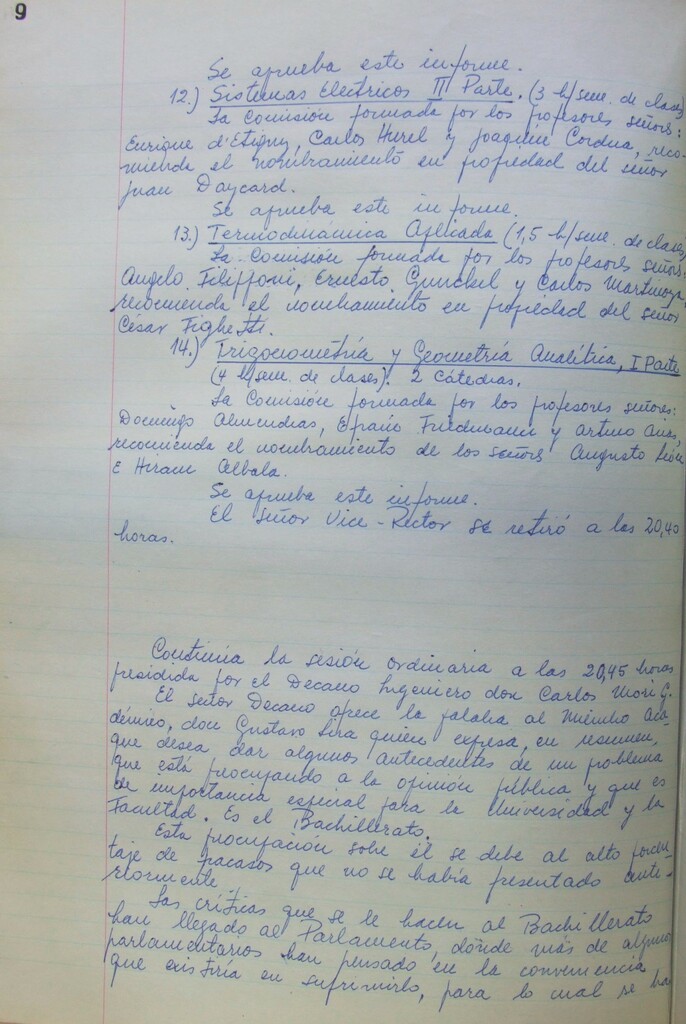 9
Se aprueba este informe.
12.) Sistemas Eléctricos II Parte. (3 h/sem. de clases)
La Comisión formada por los profesores señores:
Enrique d'Etigny, Carlos Hurel y Joaquín Cordua, reco-
mienda el nombramiento en propiedad del señor
Juan Daycard.
Se aprueba este informe.
13.) Termodinámica Aplicada (1,5 h/sem. de clases)
La Comisión formada por los profesores señores:
Angelo Filipponi, Ernesto Gunckel y Carlos
recomienda el nombramiento en propiedad del señor
César Fighetti.
14.) Trigonometría y Geometría Analítica, I Parte
(4 h/sem. de clases). 2 Cátedras.
La Comisión formada por los profesores señores:
Domingo Almendras, Efraín Friedmann y Arturo Arias,
recomienda el nombramiento de los señores Augusto León
E Hiram Albala.
Se aprueba este informe.
El señor Vice-Rector se retiró a las 20,40
horas.
Continúa la sesión ordinaria a las 20,45 horas
presidida por el Decano Ingeniero don Carlos Mori G.
El señor Decano ofrece la palabra al Miembro Aca-
démico, don Gustavo Lira quien expresa, en resumen,
que desea dar algunos antecedentes de un problema
que está preocupando a la opinión pública y que es
de importancia especial para la Universidad y la
Facultad. Es el Bachillerato.
Esta preocupación sobre él se debe al alto porcen-
taje de fracasos que no se había presentado ante-
riormente
Las críticas que se le hacen al Bachillerato
han llegado al Parlamento, dónde más de algunos
parlamentarios han pensado en la conveniencia
que existiría en suprimirlo, para lo cual se ha